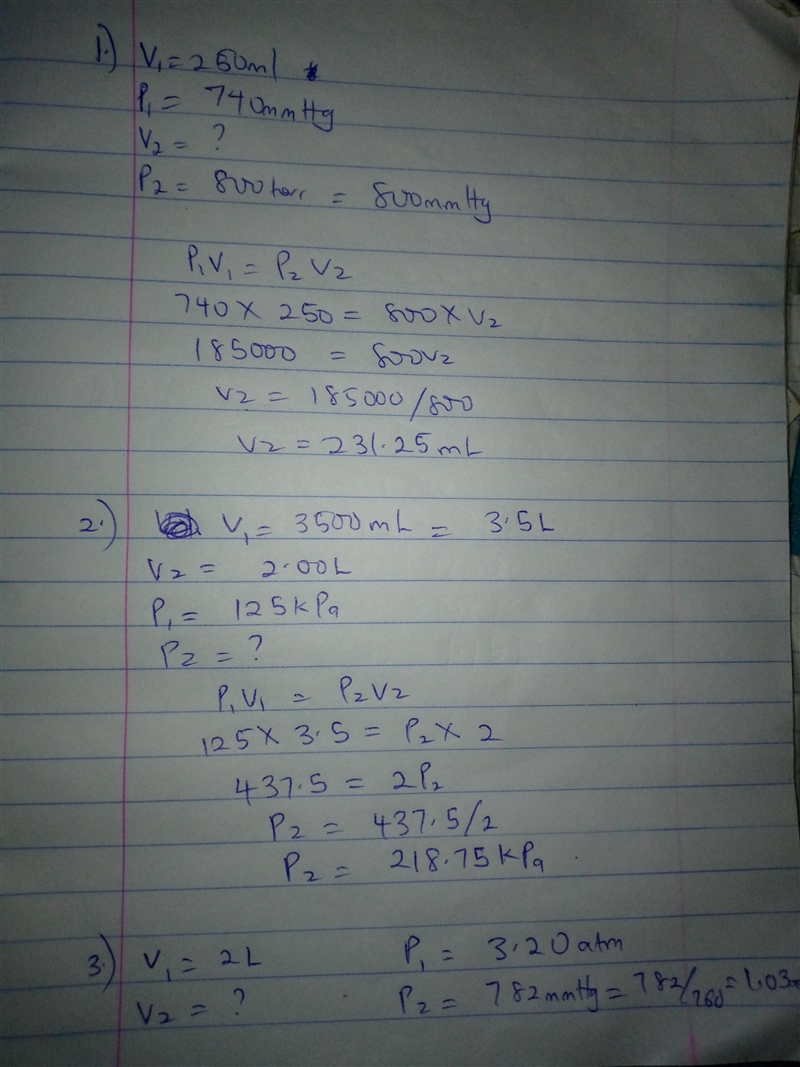 1.) V₁ = 250ml
P₁ = 740mmHg
V₂ = ?
P₂ = 800torr = 800mmHg
P₁V₁ = P₂V₂
740 × 250 = 800 × V₂
185000 = 800V₂
V₂ = 185000/800
V₂ = 231.25mL
2.) V₁ = 3500mL = 3.5L
V₂ = 2.00L
P₁ = 125kPa
P₂ = ?
P₁V₁ = P₂V₂
125 × 3.5 = P₂ × 2
437.5 = 2P₂
P₂ = 437.5/2
P₂ = 218.75kPa
3.) V₁ = 2L P₁ = 3.20atm
V₂ = ? P₂ = 782mmHg = 782/760 = 1.03